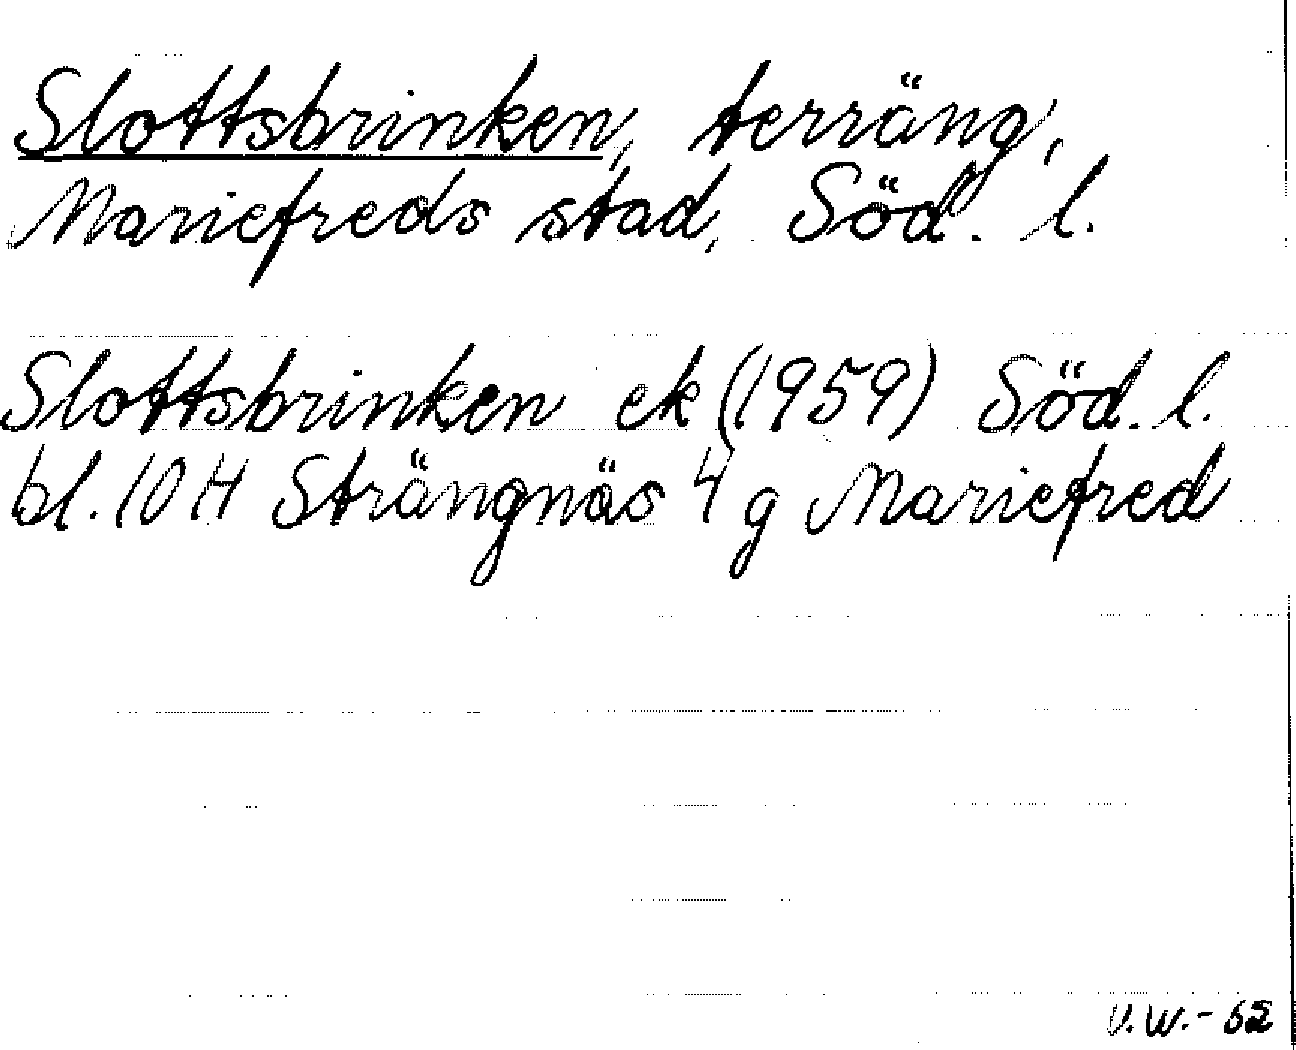 Slottsbrinken, terräng,
Mariefreds stad, Söd. l.
Slottsbrinken ek (1959) Söd. l.
bl. 10 H Strängnäs 4 g Mariefred
V.W.-62